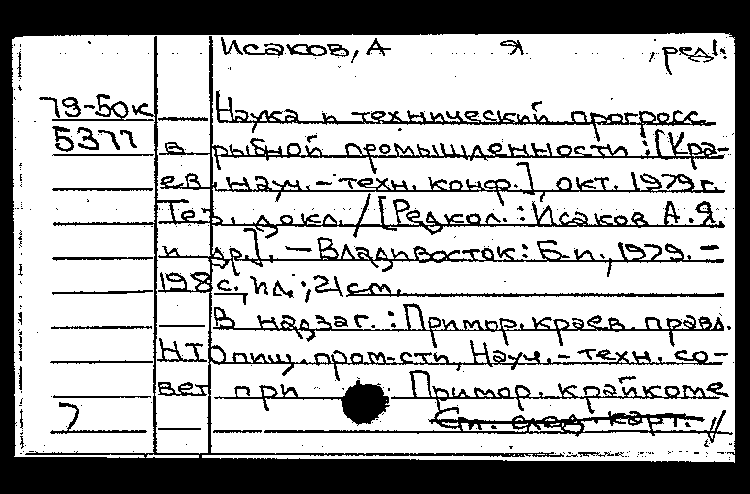 Исаков, А Я , ред.
79-50к Наука и технический прогресс
5377 в рыбной промышленности : [Кра-
ев. науч.-техн. конф.], окт. 1979 г.
Тез. докл. / [Редкол. : Исаков А.Я.
и др.]. — Владивосток : Б.и., 1979. -
198 с., ил. ; 21 см.
В надзаг. : Примор. краев. правл.
НТО пищ. пром-сти, Науч.-техн. со-
вет при Примор. крайкоме
См. след. карт. //